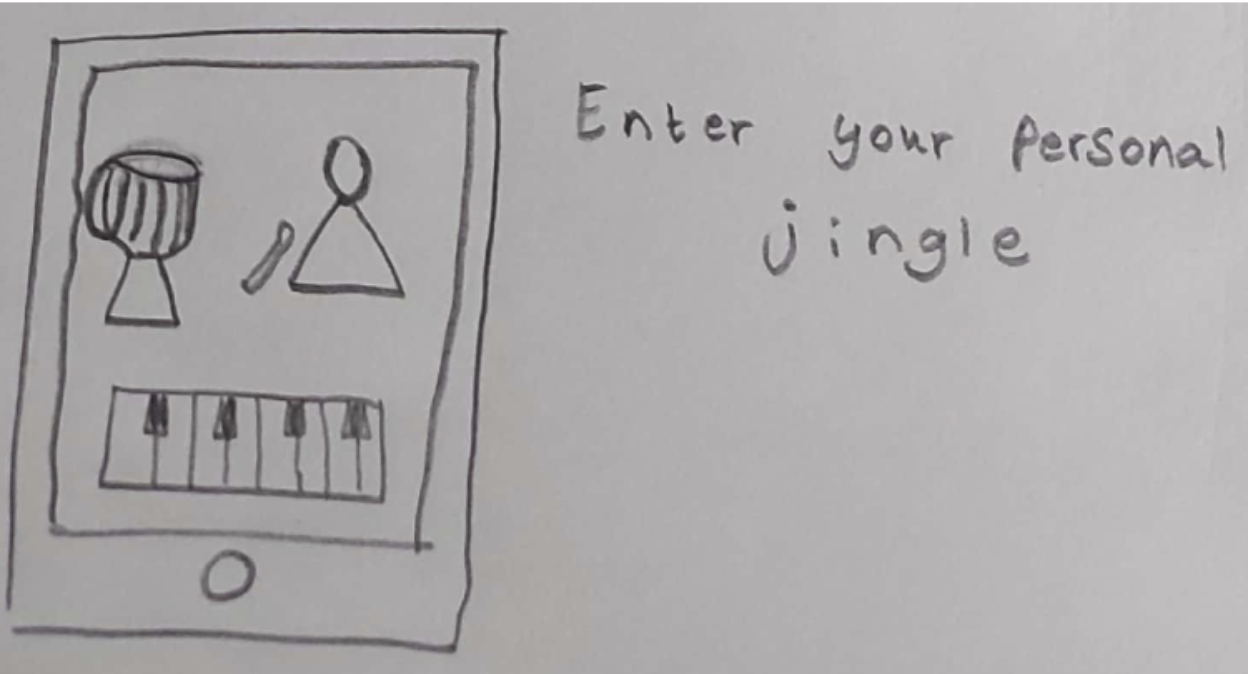 Enter your personal
jingle